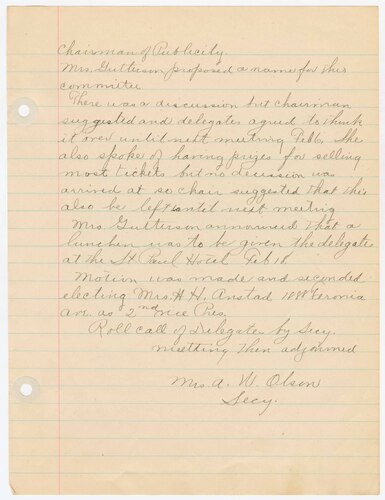 Chairman of Publicity.
Mrs. Gutterson proposed a name for this
committee
There was a discussion but chairman
suggested and delegates agreed to think
it over until next meeting Feb 6, She
also spoke of having prizes for selling
most tickets but no decision was
arrived at so chair suggested that this
also be left until next meeting
Mrs Gutterson announced that a
lunchen was to be given the delegates
at the St. Paul Hotel Feb 18
Motion was made and seconded
electing Mrs. H. H. Anstad 1888 Feronia
Ave. as 2nd vice Pres.
Roll call of Delegates by Secy.
meeting then adjourned
Mrs. A. W. Olson
Secy.